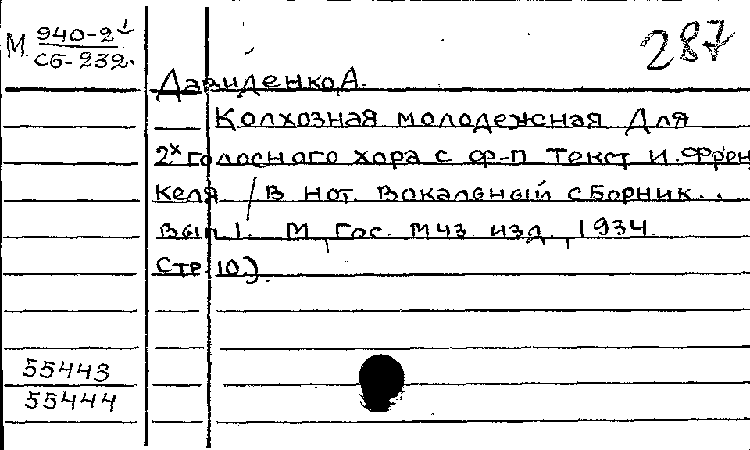 М 940-2¹
Сб-232.
287
Давиденко, А.
Колхозная молодежная Для
2х голосного хора с ф-п Текст И. Френ
келя /В нот. Вокальный сборник..
Вып 1. М, Гос. муз изд, 1934
Стр. 10.)
55443
55444